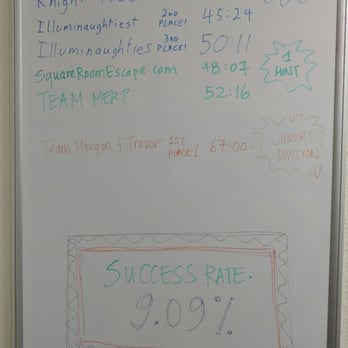 Illuminaughtiest 2ND PLACE! 45:24
Illuminaughties 3RD PLACE! 50:11
SquareRoomEscape.com 48:07
1 HINT
TEAM MERP 52:16
Team Morgan & Trevor 1ST PLACE! 67:00
JUNIORS DIVISION
SUCCESS RATE:
9.09%